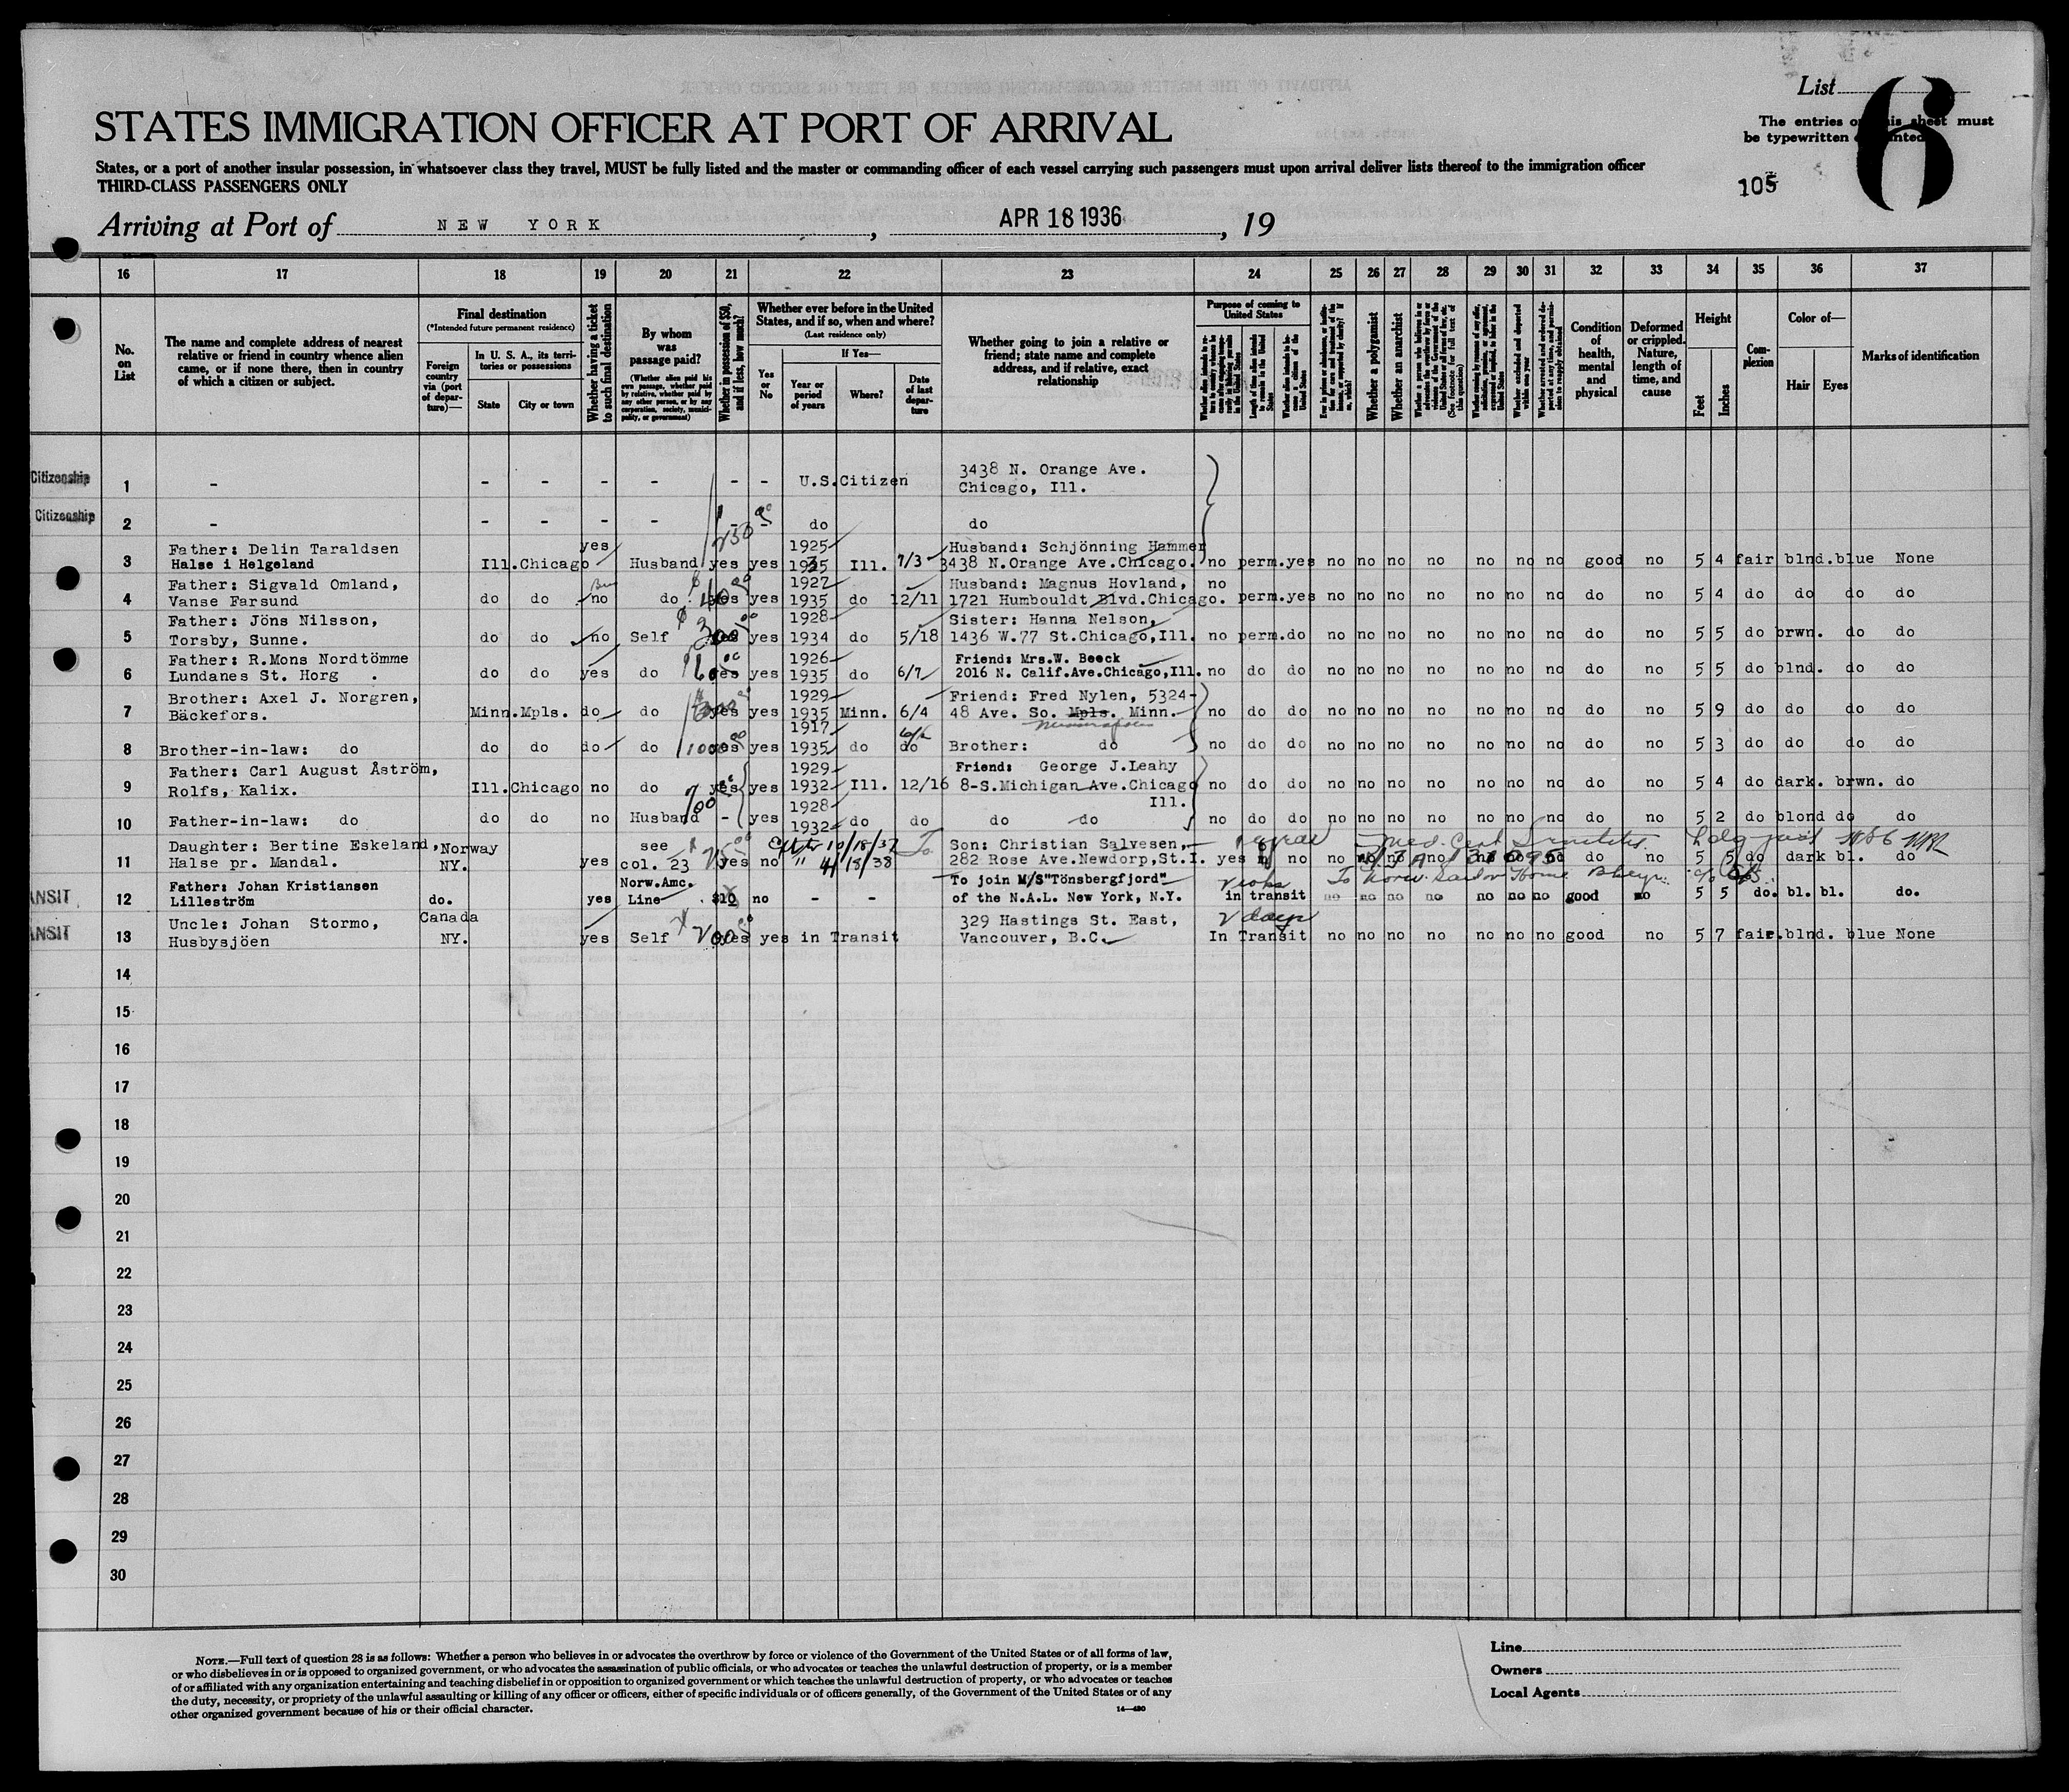 List
6
The entries on this sheet must
be typewritten or printed
STATES IMMIGRATION OFFICER AT PORT OF ARRIVAL
States, or a port of another insular possession, in whatsoever class they travel, MUST be fully listed and the master or commanding officer of each vessel carrying such passengers must upon arrival deliver lists thereof to the immigration officer
THIRD-CLASS PASSENGERS ONLY
105
Arriving at Port of NEW YORK, APR 18 1936, 19
16 17 18 19 20 21 22 23 24 25 26 27 28 29 30 31 32 33 34 35 36 37
No. on List
The name and complete address of nearest relative or friend in country whence alien came, or if none there, then in country of which a citizen or subject.
Final destination
(*Intended future permanent residence)
Foreign country via (port of departure)—
In U. S. A., its territories or possessions
State
City or town
Whether having a ticket to such final destination
By whom was passage paid?
(Whether alien paid his own passage, whether paid by relative, whether paid by any other person, or by any corporation, society, municipality, or government)
Whether in possession of $50, and if less, how much?
Whether ever before in the United States, and if so, when and where?
(Last residence only)
Yes or No
If Yes—
Year or period of years
Where?
Date of last departure
Whether going to join a relative or friend; state name and complete address, and if relative, exact relationship
Purpose of coming to United States
Whether a polygamist
Whether an anarchist
Condition of health, mental and physical
Deformed or crippled. Nature, length of time, and cause
Height
Feet
Inches
Complexion
Color of—
Hair
Eyes
Marks of identification
Citizenship
1 - - - - - - - - U.S.Citizen 3438 N. Orange Ave.
Chicago, Ill.
Citizenship
2 - - - - - - - do do
3 Father: Delin Taraldsen yes 1925 Husband: Schjönning Hammer
Halse i Helgeland Ill. Chicago Husband yes yes 1935 Ill. 7/3 3438 N.Orange Ave.Chicago. no perm. yes no no no no no no no good no 5 4 fair blnd. blue None
4 Father: Sigvald Omland, 1927 Husband: Magnus Hovland, no
Vanse Farsund do do no do yes yes 1935 do 12/11 1721 Humbouldt Blvd.Chicago. perm. yes no no no no no no no do no 5 4 do do do do
5 Father: Jöns Nilsson, 1928 Sister: Hanna Nelson,
Torsby, Sunne. do do no Self 300 yes yes 1934 do 5/18 1436 W.77 St.Chicago,Ill. no perm. do no no no no no no no do no 5 5 do brwn. do do
6 Father: R.Mons Nordtömme 1926 Friend: Mrs.W. Beeck
Lundanes St. Horg . do do yes do yes yes 1935 do 6/7 2016 N. Calif.Ave.Chicago,Ill. no do do no no no no no no no do no 5 5 do blnd. do do
7 Brother: Axel J. Norgren, 1929 Friend: Fred Nylen, 5324-
Bäckefors. Minn. Mpls. do do yes yes 1935 Minn. 6/4 48 Ave. So. Mpls. Minn. no do do no no no no no no no do no 5 9 do do do do
Minneapolis
8 1917
Brother-in-law: do do do do do 1000 yes yes 1935 do do Brother: do no do do no no no no no no no do no 5 3 do do do do
9 Father: Carl August Åström, 1929 Friend: George J.Leahy
Rolfs, Kalix. Ill. Chicago no do yes yes 1932 Ill. 12/16 8-S.Michigan Ave.Chicago no do do no no no no no no no do no 5 4 do dark. brwn. do
Ill.
10 1928
Father-in-law: do do do no Husband - yes 1932 do do do do no do do no no no no no no no do no 5 2 do blond do do
11 Daughter: Bertine Eskeland, Norway see Son: Christian Salvesen,
Halse pr. Mandal. NY. yes col. 23 yes no 282 Rose Ave.Newdorp,St.I. yes no no no no no no no no do no 5 5 do dark bl. do
ANSIT
12 Father: Johan Kristiansen Norw.Amc. To join M/S"Tönsbergfjord"
Lilleström do. yes Line $10 no - - of the N.A.L. New York, N.Y. in transit no no no no no no no good no 5 5 do. bl. bl. do.
ANSIT
13 Uncle: Johan Stormo, Canada 329 Hastings St. East, 2 days
Husbysjöen NY. yes Self 200 yes yes in Transit Vancouver, B.C. In Transit no no no no no no no good no 5 7 fair. blnd. blue None
14
15
16
17
18
19
20
21
22
23
24
25
26
27
28
29
30
NOTE.—Full text of question 28 is as follows: Whether a person who believes in or advocates the overthrow by force or violence of the Government of the United States or of all forms of law,
or who disbelieves in or is opposed to organized government, or who advocates the assassination of public officials, or who advocates or teaches the unlawful destruction of property, or is a member
of or affiliated with any organization entertaining and teaching disbelief in or opposition to organized government or which teaches the unlawful destruction of property, or who advocates or teaches
the duty, necessity, or propriety of the unlawful assaulting or killing of any officer or officers, either of specific individuals or of officers generally, of the Government of the United States or of any
other organized government because of his or their official character.
14—480
Line
Owners
Local Agents